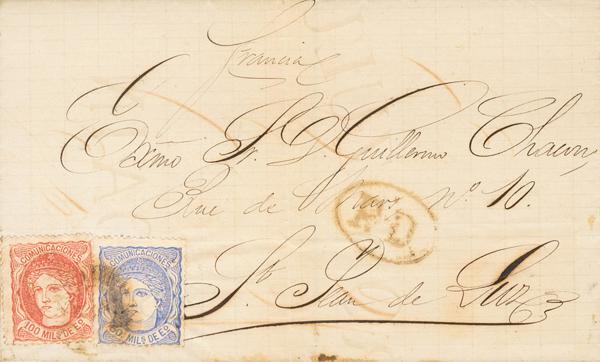 Francia
Exmo Sr. D. Guillermo Chacon
Rue de Mar, nº 10.
St Jean de Luz
P.D.
COMUNICACIONES
100 MILS DE EO
COMUNICACIONES
50 MILS DE EO